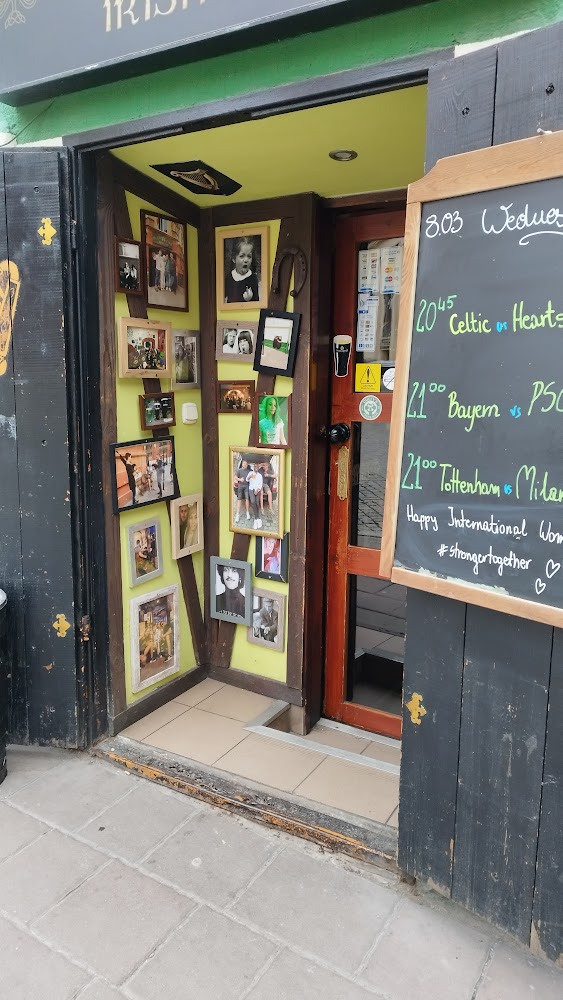 IRISH
8.03 Wednes
20⁴⁵ Celtic vs Hearts
21⁰⁰ Bayern vs PSG
21⁰⁰ Tottenham vs Milan
Happy International Wom
#strongertogether